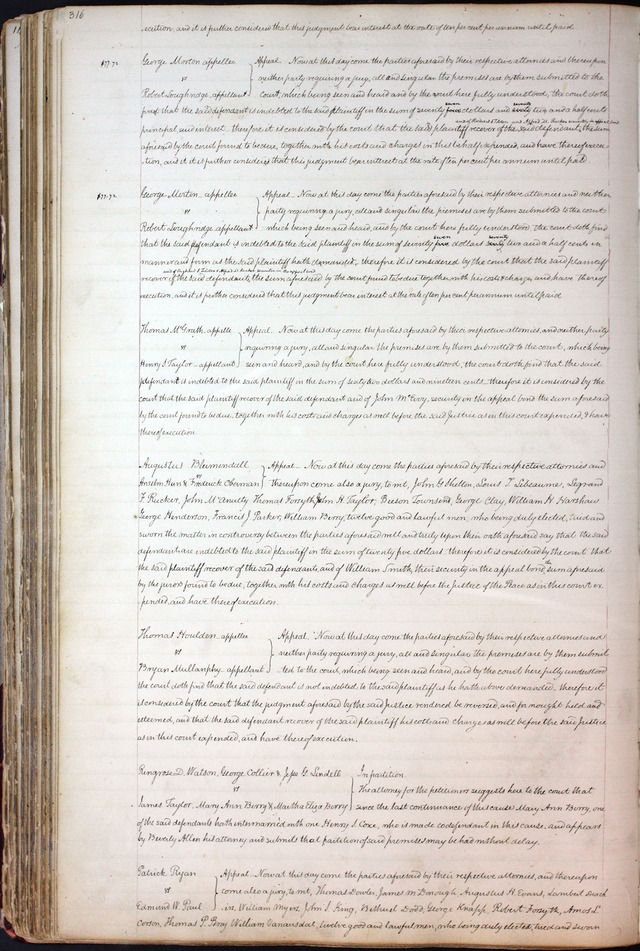 316
11
execution, and it is further considered that this judgment bear interest at the rate of ten per cent per annum until paid
$77.72
George Morton appellee
vs
Robert Loughridge, appellant
Appeal. Now at this day come the parties aforesaid by their respective attornies and thereupon
neither party requiring a jury, all and singular the premises are by them submitted to the
court, which being seen and heard and by the court here fully understood, the court doth
find that the said defendant is indebted to the said plaintiff in the sum of seventy five seven dollars and seventy two and a half cents
principal and interest. therefore it is considered by the court that the said plaintiff recover of the said defendant, the sum
aforesaid by the court found to be due, together with his costs and charges in this behalf expended, and have thereof execu-
tion, and it is further considered that this judgment bear interest at the rate of ten per cent per annum until paid
$77.72
George Morton appellee
vs
Robert Loughridge appellant
Appeal. Now at this day come the parties aforesaid by their respective attornies and neither
party requiring a jury, all and singular the premises are by them submitted to the court
which being seen and heard, and by the court here fully understood, the court doth find
that the said defendant is indebted to the said plaintiff in the sum of seventy five seven dollars seventy two and a half cents in
manner and form as the said plaintiff hath demanded, therefore it is considered by the court that the said plaintiff
recover of the said defendant, the sum aforesaid by the court found to be due together with his costs & charges, and have thereof
execution, and it is further considered that this judgment bear interest at the rate of ten per cent per annum until paid
Thomas McGrath, appelle
vs
Henry S. Taylor - appellant
Appeal. Now at this day come the parties aforesaid by their respective attornies and neither party
requiring a jury, all and singular the premises are by them submitted to the court, which being
seen and heard, and by the court here fully understood, the court doth find that the said
defendant is indebted to the said plaintiff in the sum of sixty two dollars and nineteen cents therefore it is considered by the
court that the said plaintiff recover of the said defendant and of John McEvoy, security in the appeal bond the sum aforesaid
by the court found to be due, together with his costs and charges as well before the said Justice as in this court expended, & have
thereof execution
Augustus Blumendell
Anselm Hun & Fredrick Oberman
Appeal - Now at this day come the parties aforesaid by their respective attornies and
thereupon come also a jury, to wit, John G. Shelton, Louis T. Lebeaume, Legrand
F. Rucker, John McAnulty Thomas Forsyth, John H. Taylor, Beeson Townsend, George Clay, William H. Harshaw
George Henderson, Francis J. Parker, William Berry, twelve good and lawful men, who being duly elected, tried and
sworn the matter in controversy between the parties aforesaid well and truly upon their oath aforesaid say that the said
defendants are indebted to the said plaintiff in the sum of twenty five dollars. therefore it is considered by the court that
the said plaintiff recover of the said defendants, and of William Smith, their security in the appeal bond, the sum aforesaid
by the jurors found to be due, together with his costs and charges as well before the Justice of the Peace as in this court ex-
pended, and have thereof execution.
Thomas Houlden appellee
vs
Bryan Mullanphy appellant
Appeal. Now at this day come the parties aforesaid by their respective attornies and
neither party requiring a jury, all and singular the premises are by them submit
ted to the court, which being seen and heard, and by the court here fully understood
the court doth find that the said defendant is not indebted to the said plaintiff as he hath above demanded, therefore it
is considered by the court that the judgment aforesaid by the said justice rendered be reversed, and for nought held and
esteemed, and that the said defendant recover of the said plaintiff his costs and charges as well before the said Justice
as in this court expended, and have thereof execution.
Ringrose D. Watson, George Collier & Jesse G. Lindell
vs
James Taylor, Mary Ann Berry & Martha Eliza Berry
In partition
The attorney for the petitioners suggests here to the court that
since the last continuance of this cause Mary Ann Berry, one
of the said defendants hath intermarried with one Henry S. Coxe, who is made codefendant in this cause, and appears
by Beverly Allen his attorney and submits that partition of said premises may be had without delay.
Patrick Ryan
vs
Edmund W. Paul
Appeal - Now at this day come the parties aforesaid by their respective attornies, and thereupon
come also a jury, to wit, Thomas Dowler, James McDonough Augustus H. Evans, Lambert
William Myers, John S. King, Bethuel Dodd, George Knapp, Robert Forsyth, Amos L.
Corson, Thomas P. Berry William Vanausdal, twelve good and lawful men, who being duly elected, tried and sworn